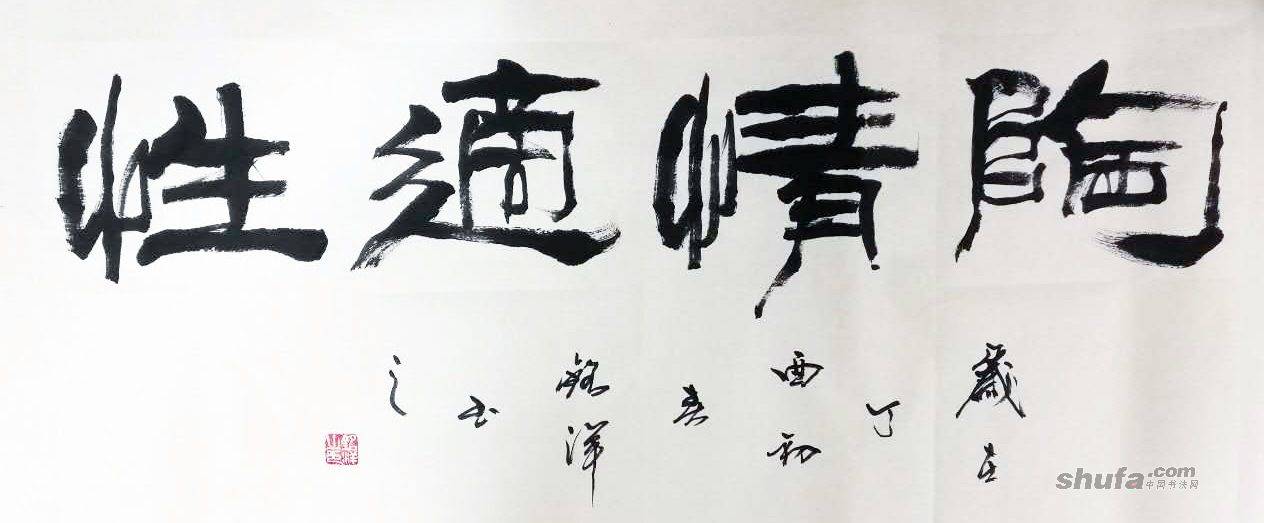 陶情適性
歲在
丁
酉初
春
銘洋
书
之
shufa.com
中国书法网